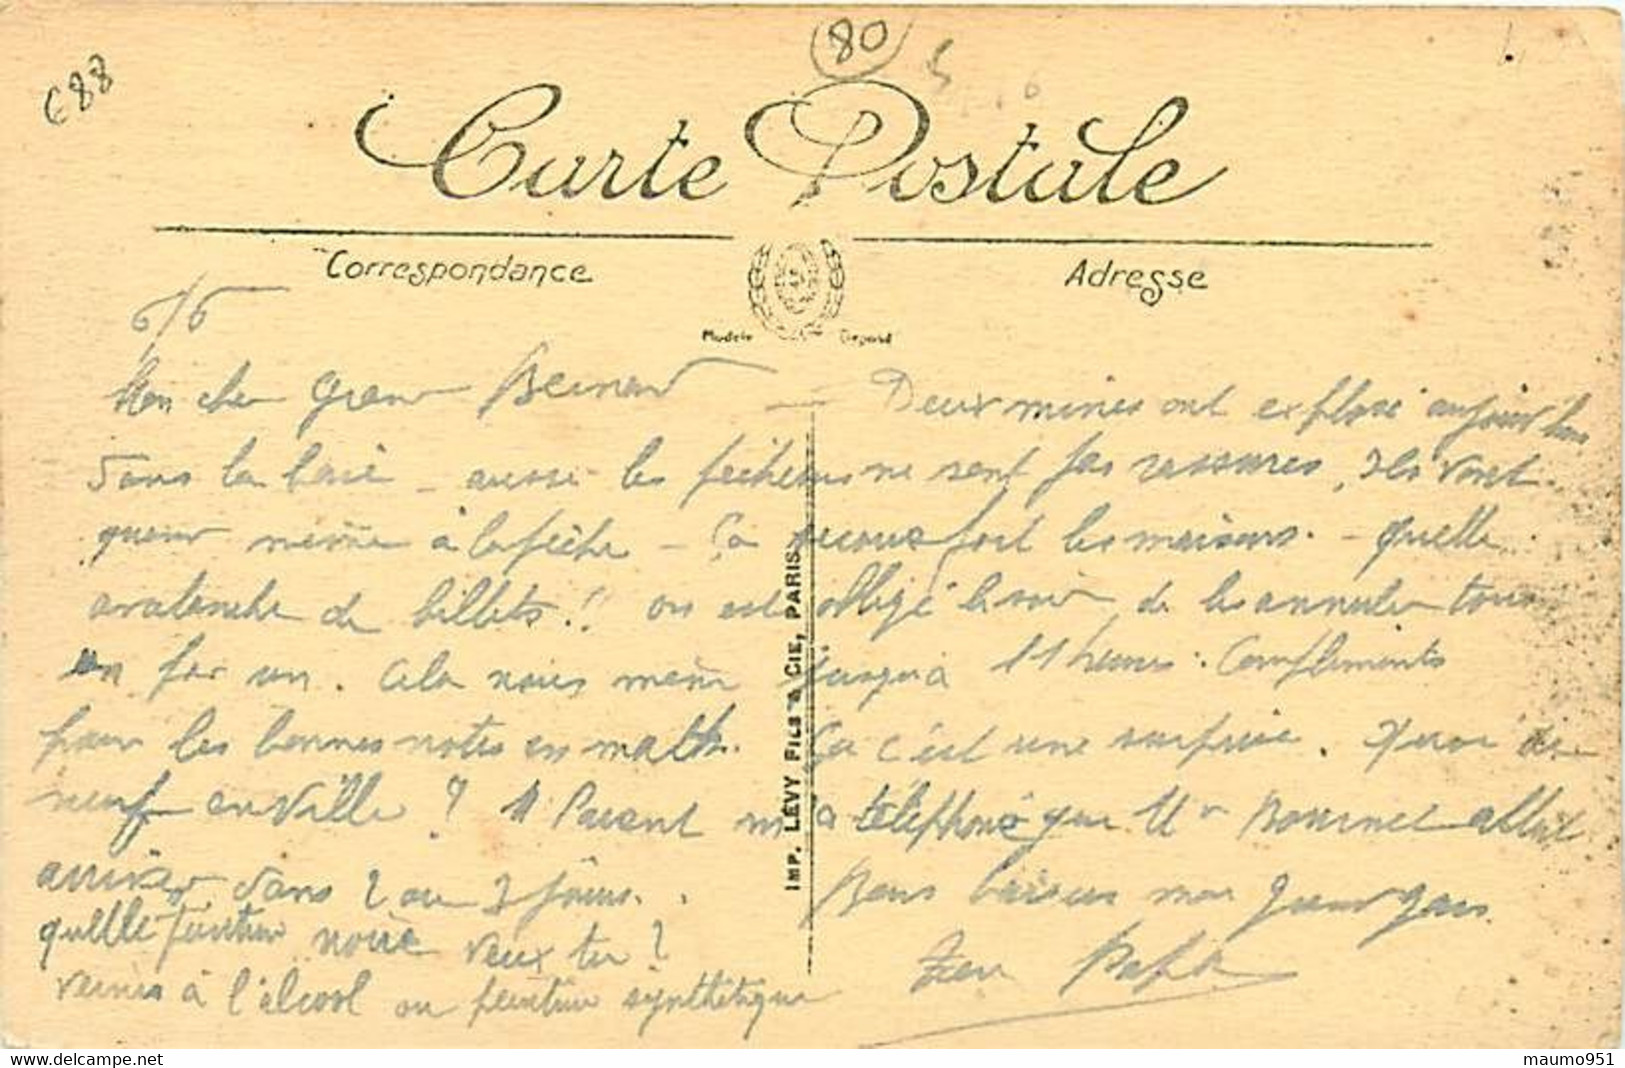 €88
80
Carte Postale
Correspondance
Adresse
Modèle Déposé
6/6
Mon cher grand Bernard — Deux mines ont explosé aujourd'hui
dans la baie — aussi les pêcheurs ne sont pas rassurés, ils vont
quand même à la pêche — Ça secoue fort les maisons. — Quelle
avalanche de billets !! on est obligé le soir de les annuler tous
un par un. Cela nous mène jusqu'à 11 heures. Compliments
pour les bonnes notes en math. Ça c'est une surprise. de
neuf en ville ? Mr Parent m'a téléphoné que Mr allait
arriver dans 2 ou 3 jours. Bons baisers mon grand gars.
quelle peinture noire veux tu ?
vernis à l'alcool ou peinture synthétique
Ton Papa
IMP. LÉVY FILS & CIE, PARIS
maumo951